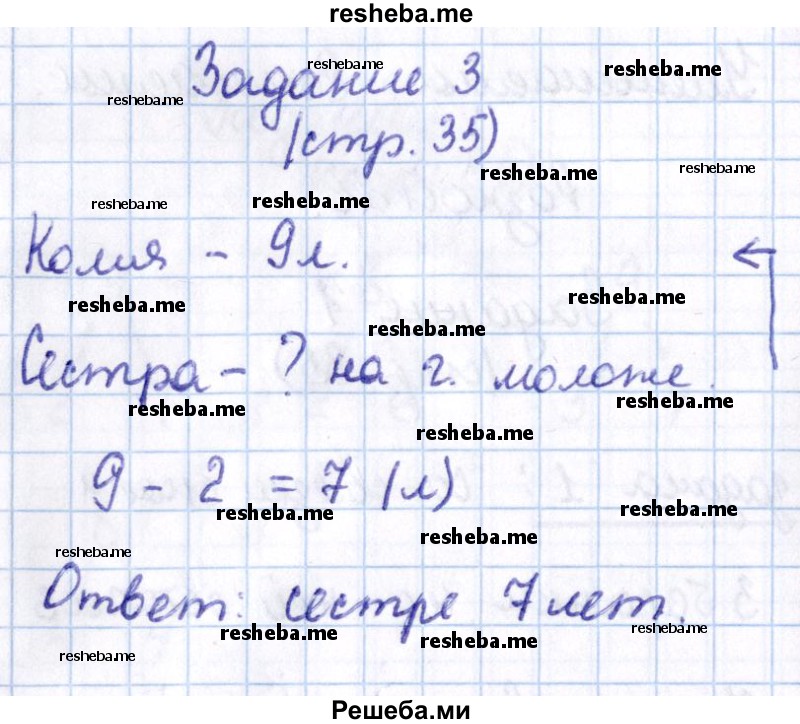 resheba.me
Задание 3
resheba.me
resheba.me
resheba.me
(стр. 35)
resheba.me
resheba.me
resheba.me
resheba.me
Колия - 9 л.
resheba.me
resheba.me
resheba.me
Сестра - ? на г. моложе.
resheba.me
resheba.me
resheba.me
9 - 2 = 7 (л)
resheba.me
resheba.me
resheba.me
resheba.me
Ответ: сестре 7 лет.
resheba.me
resheba.me
resheba.me
resheba.me
Решеба.ми